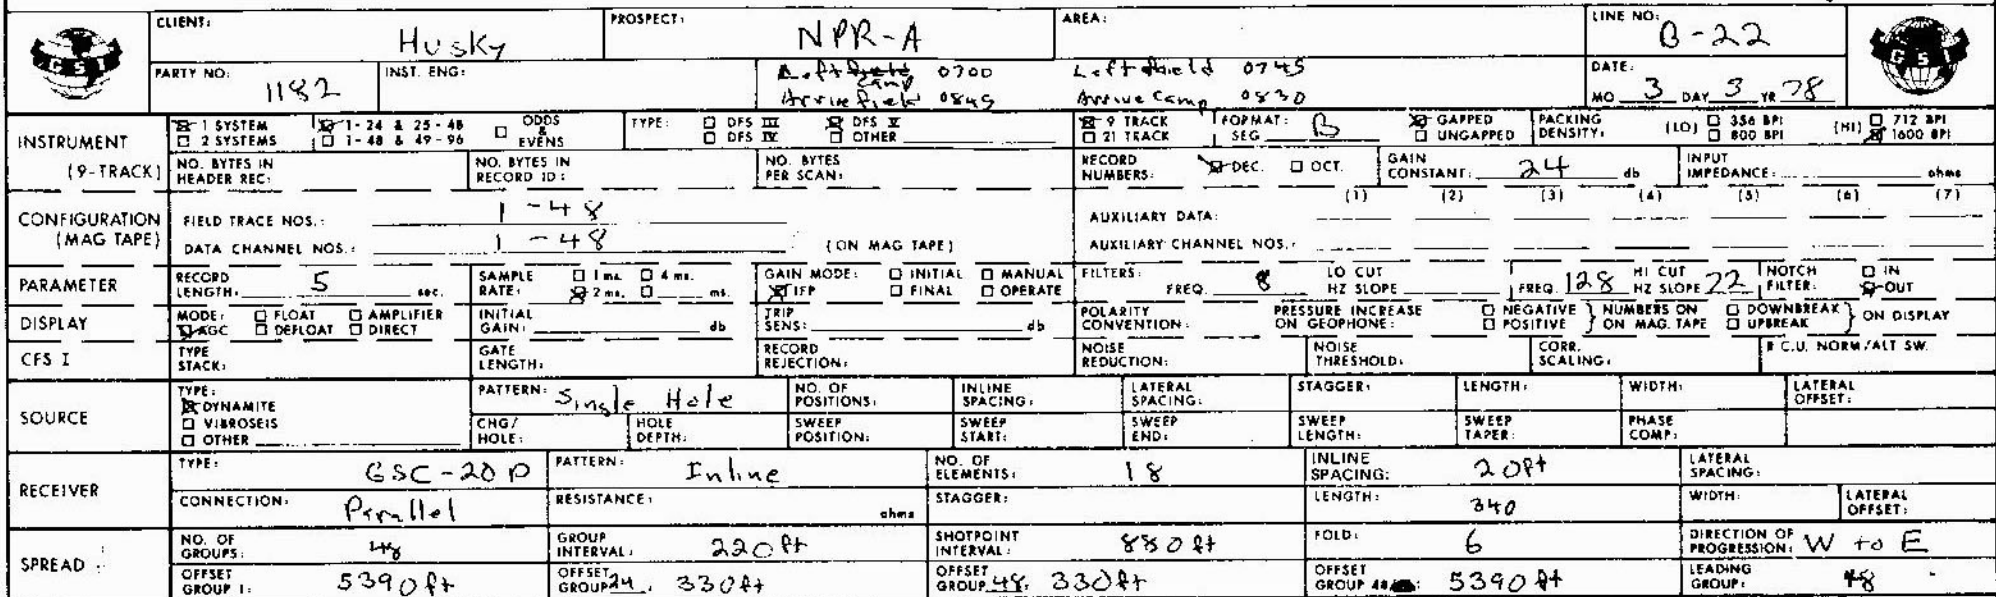 CLIENT: Husky PROSPECT: NPR-A AREA: LINE NO: B-22
GSI GSI
PARTY NO: 1182 INST. ENG: Left Camp 0700 Left field 0745 DATE:
Arrive field 0845 Arrive Camp 0830 MO 3 DAY 3 YR 78
INSTRUMENT 1 SYSTEM 1-24 & 25-48 ODDS & EVENS TYPE: DFS III DFS V 9 TRACK FORMAT: SEG B GAPPED PACKING DENSITY: (LO) 356 BPI (HI) 712 BPI
2 SYSTEMS 1-48 & 49-96 DFS IV OTHER 21 TRACK UNGAPPED 800 BPI 1600 BPI
(9-TRACK) NO. BYTES IN HEADER REC: NO. BYTES IN RECORD ID: NO. BYTES PER SCAN: RECORD NUMBERS: DEC. OCT. GAIN CONSTANT: 24 db INPUT IMPEDANCE: ohms
CONFIGURATION (MAG TAPE) FIELD TRACE NOS.: 1-48 AUXILIARY DATA: (1) (2) (3) (4) (5) (6) (7)
DATA CHANNEL NOS.: 1-48 (ON MAG TAPE) AUXILIARY CHANNEL NOS.:
PARAMETER RECORD LENGTH: 5 sec. SAMPLE RATE: 1 ms. 4 ms. 2 ms. ms. GAIN MODE: INITIAL MANUAL IFP FINAL OPERATE FILTERS: FREQ. 8 LO CUT HZ SLOPE FREQ. 128 HI CUT HZ SLOPE 72 NOTCH FILTER: IN OUT
DISPLAY MODE: FLOAT AMPLIFIER AGC DEFLOAT DIRECT INITIAL GAIN: db TRIP SENS: db POLARITY CONVENTION: PRESSURE INCREASE ON GEOPHONE: NEGATIVE POSITIVE } NUMBERS ON MAG. TAPE DOWNBREAK UPBREAK } ON DISPLAY
CFS I TYPE STACK: GATE LENGTH: RECORD REJECTION: NOISE REDUCTION: NOISE THRESHOLD: CORR. SCALING: # C.U. NORM/ALT SW.
SOURCE TYPE: DYNAMITE VIBROSEIS OTHER PATTERN: Single Hole NO. OF POSITIONS: INLINE SPACING: LATERAL SPACING: STAGGER: LENGTH: WIDTH: LATERAL OFFSET:
CHG/HOLE: HOLE DEPTH: SWEEP POSITION: SWEEP START: SWEEP END: SWEEP LENGTH: SWEEP TAPER: PHASE COMP:
RECEIVER TYPE: GSC-20D PATTERN: Inline NO. OF ELEMENTS: 18 INLINE SPACING: 20ft LATERAL SPACING:
CONNECTION: Parallel RESISTANCE: ohms STAGGER: LENGTH: 340 WIDTH: LATERAL OFFSET:
SPREAD: NO. OF GROUPS: 48 GROUP INTERVAL: 220 ft SHOTPOINT INTERVAL: 880 ft FOLD: 6 DIRECTION OF PROGRESSION: W to E
OFFSET GROUP 1: 5390ft OFFSET GROUP 24: 330ft OFFSET GROUP 48: 330ft OFFSET GROUP 48: 5390 ft LEADING GROUP: 48